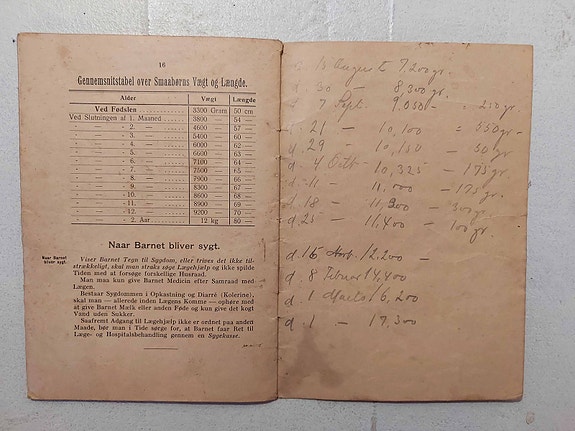 16
Gennemsnitstabel over Smaabørns Vægt og Længde.
Alder Vægt Længde
Ved Fødslen 3300 Gram 50 cm
Ved Slutningen af 1. Maaned 3800 — 54 —
— — - 2. — 4600 — 57 —
— — - 3. — 5400 — 60 —
— — - 4. — 6000 — 62 —
— — - 5. — 6600 — 63 —
— — - 6. — 7100 — 64 —
— — - 7. — 7500 — 65 —
— — - 8. — 7900 — 66 —
— — - 9. — 8300 — 67 —
— — -10. — 8600 — 68 —
— — -11. — 8900 — 69 —
— — -12. — 9200 — 70 —
— — - 2. Aar 12 kg 80 —
Naar Barnet bliver sygt.
Naar Barnet
bliver sygt.
Viser Barnet Tegn til Sygdom, eller trives det ikke til-
strækkeligt, skal man straks søge Lægehjælp og ikke spilde
Tiden med at forsøge forskellige Husraad.
Man maa kun give Barnet Medicin efter Samraad med
Lægen.
Bestaar Sygdommen i Opkastning og Diarré (Kolerine),
skal man — allerede inden Lægens Komme — ophøre med
at give Barnet Mælk eller anden Føde og kun give det kogt
Vand uden Sukker.
Saafremt Adgang til Lægehjælp ikke er ordnet paa anden
Maade, bør man i Tide sørge for, at Barnet faar Ret til
Læge- og Hospitalsbehandling gennem en Sygekasse.
August 7,200 gr.
d. 30 — 8,300 gr.
d. 7 Sept. 9,050 — 250 gr.
d. 21 — 10,100 = 550 gr.
d. 29 — 10,150 — 50 gr.
d. 4 Octb 10,325 — 175 gr.
d. 11 — 11,000 — 175 gr.
d. 18 — 11,300 — 300 gr.
d. 25 — 11,400 — 100 gr.
d. 15 12,200 —
d. 8 Febuar 14,400
d. 1 Marts 16,200
d. 1 — 17,300